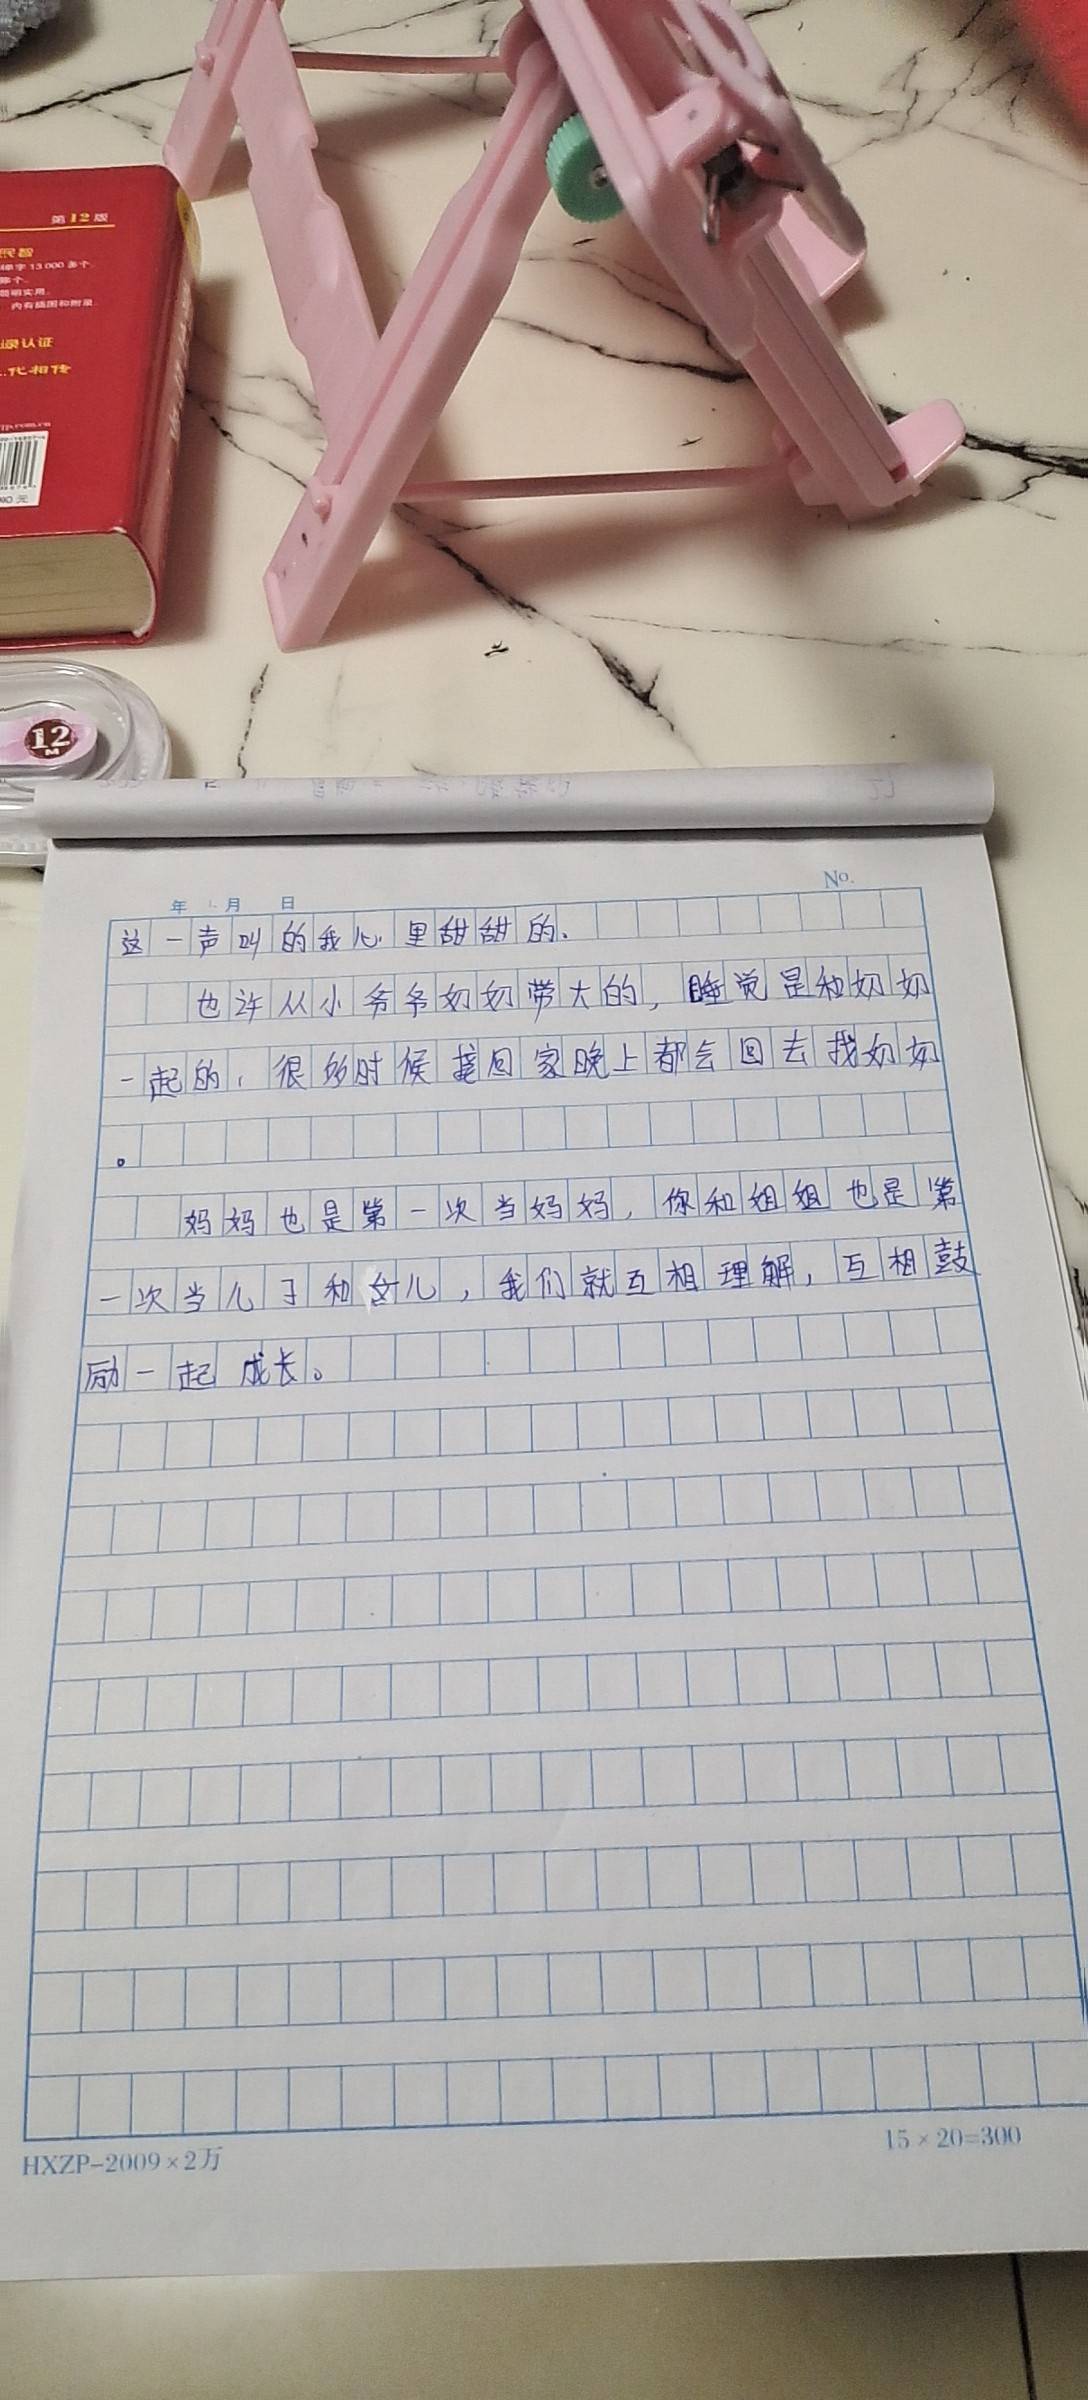 第12版
民智
单字13 000多个
内有插图和附录
代相传
12
M
年 月 日
No.
这一声叫的我心里甜甜的.
也许从小爷爷奶奶带大的,睡觉是和奶奶
一起的,很多时候接回家晚上都会回去找奶奶
。
妈妈也是第一次当妈妈,你和姐姐也是第
一次当儿子和女儿,我们就互相理解,互相鼓
励一起成长。
HXZP-2009×2万
15×20=300